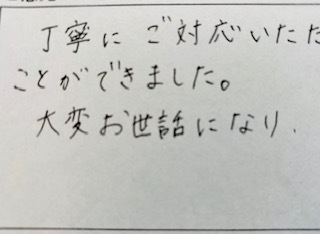 丁寧に ご対応いただ
ことができました。
大変お世話になり.